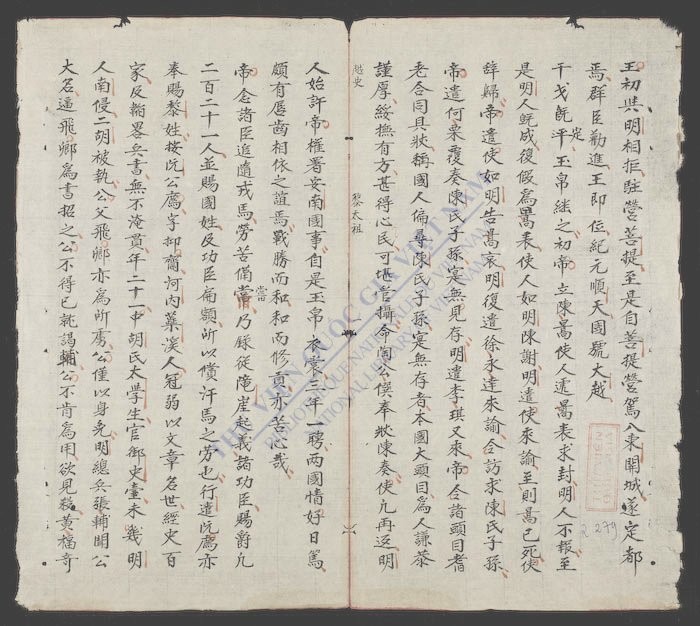 王初與明相拒駐營菩提至是自菩提營駕入東關城遂定都
焉群臣勸進王即位紀元順天國號大越
干戈旣平玉帛継之初帝立陳暠使人遞暠表求封明人不報至
定
是明人旣成復假爲暠表使人如明陳謝明遣使來諭至則暠已死使
辞歸帝遣使如明告暠哀明復遣徐永達來諭令訪求陳氏子孫
帝遣何栗覆奏陳氏子孫寔無見存明遣李琪又來帝令諸頭目耆
老合同具狀稱國人徧尋陳氏子孫寔無存者本國大頭目爲人謙恭
謹厚綏撫有方甚得心民可堪管攝命閣公僎奉狀陳奏使凢再返明
越史
黎太祖
人始許帝權署安南國事自是玉帛衣裳三年一聘两國情好日篤
頗有唇齒相依之誼焉戰勝而和和而修貢亦苦心哉
帝念諸臣追隨戎馬勞苦備嘗乃録從隆崖起義諸功臣賜爵凢
當
二百二十一人並賜國姓及功臣扁額所以償汗馬之勞也行遣阮廌亦
奉賜黎姓按阮公廌字抑齋河内蘂溪人冠弱以文章名世經史百
家及韜畧兵書無不淹貫年二十一中胡氏太學生官御史臺未幾明
人南侵二胡被執公父飛卿亦爲所虜公僅以身免明總兵張輔聞公
大名逼飛卿爲書招之公不得已就謁輔公不肯爲用欲見殺黃福奇
THƯ VIỆN QUỐC GIA VIỆT NAM
BIBLIOTHEQUE NATIONALE DU VIETNAM
NATIONAL LIBRARY OF VIETNAM
R 279